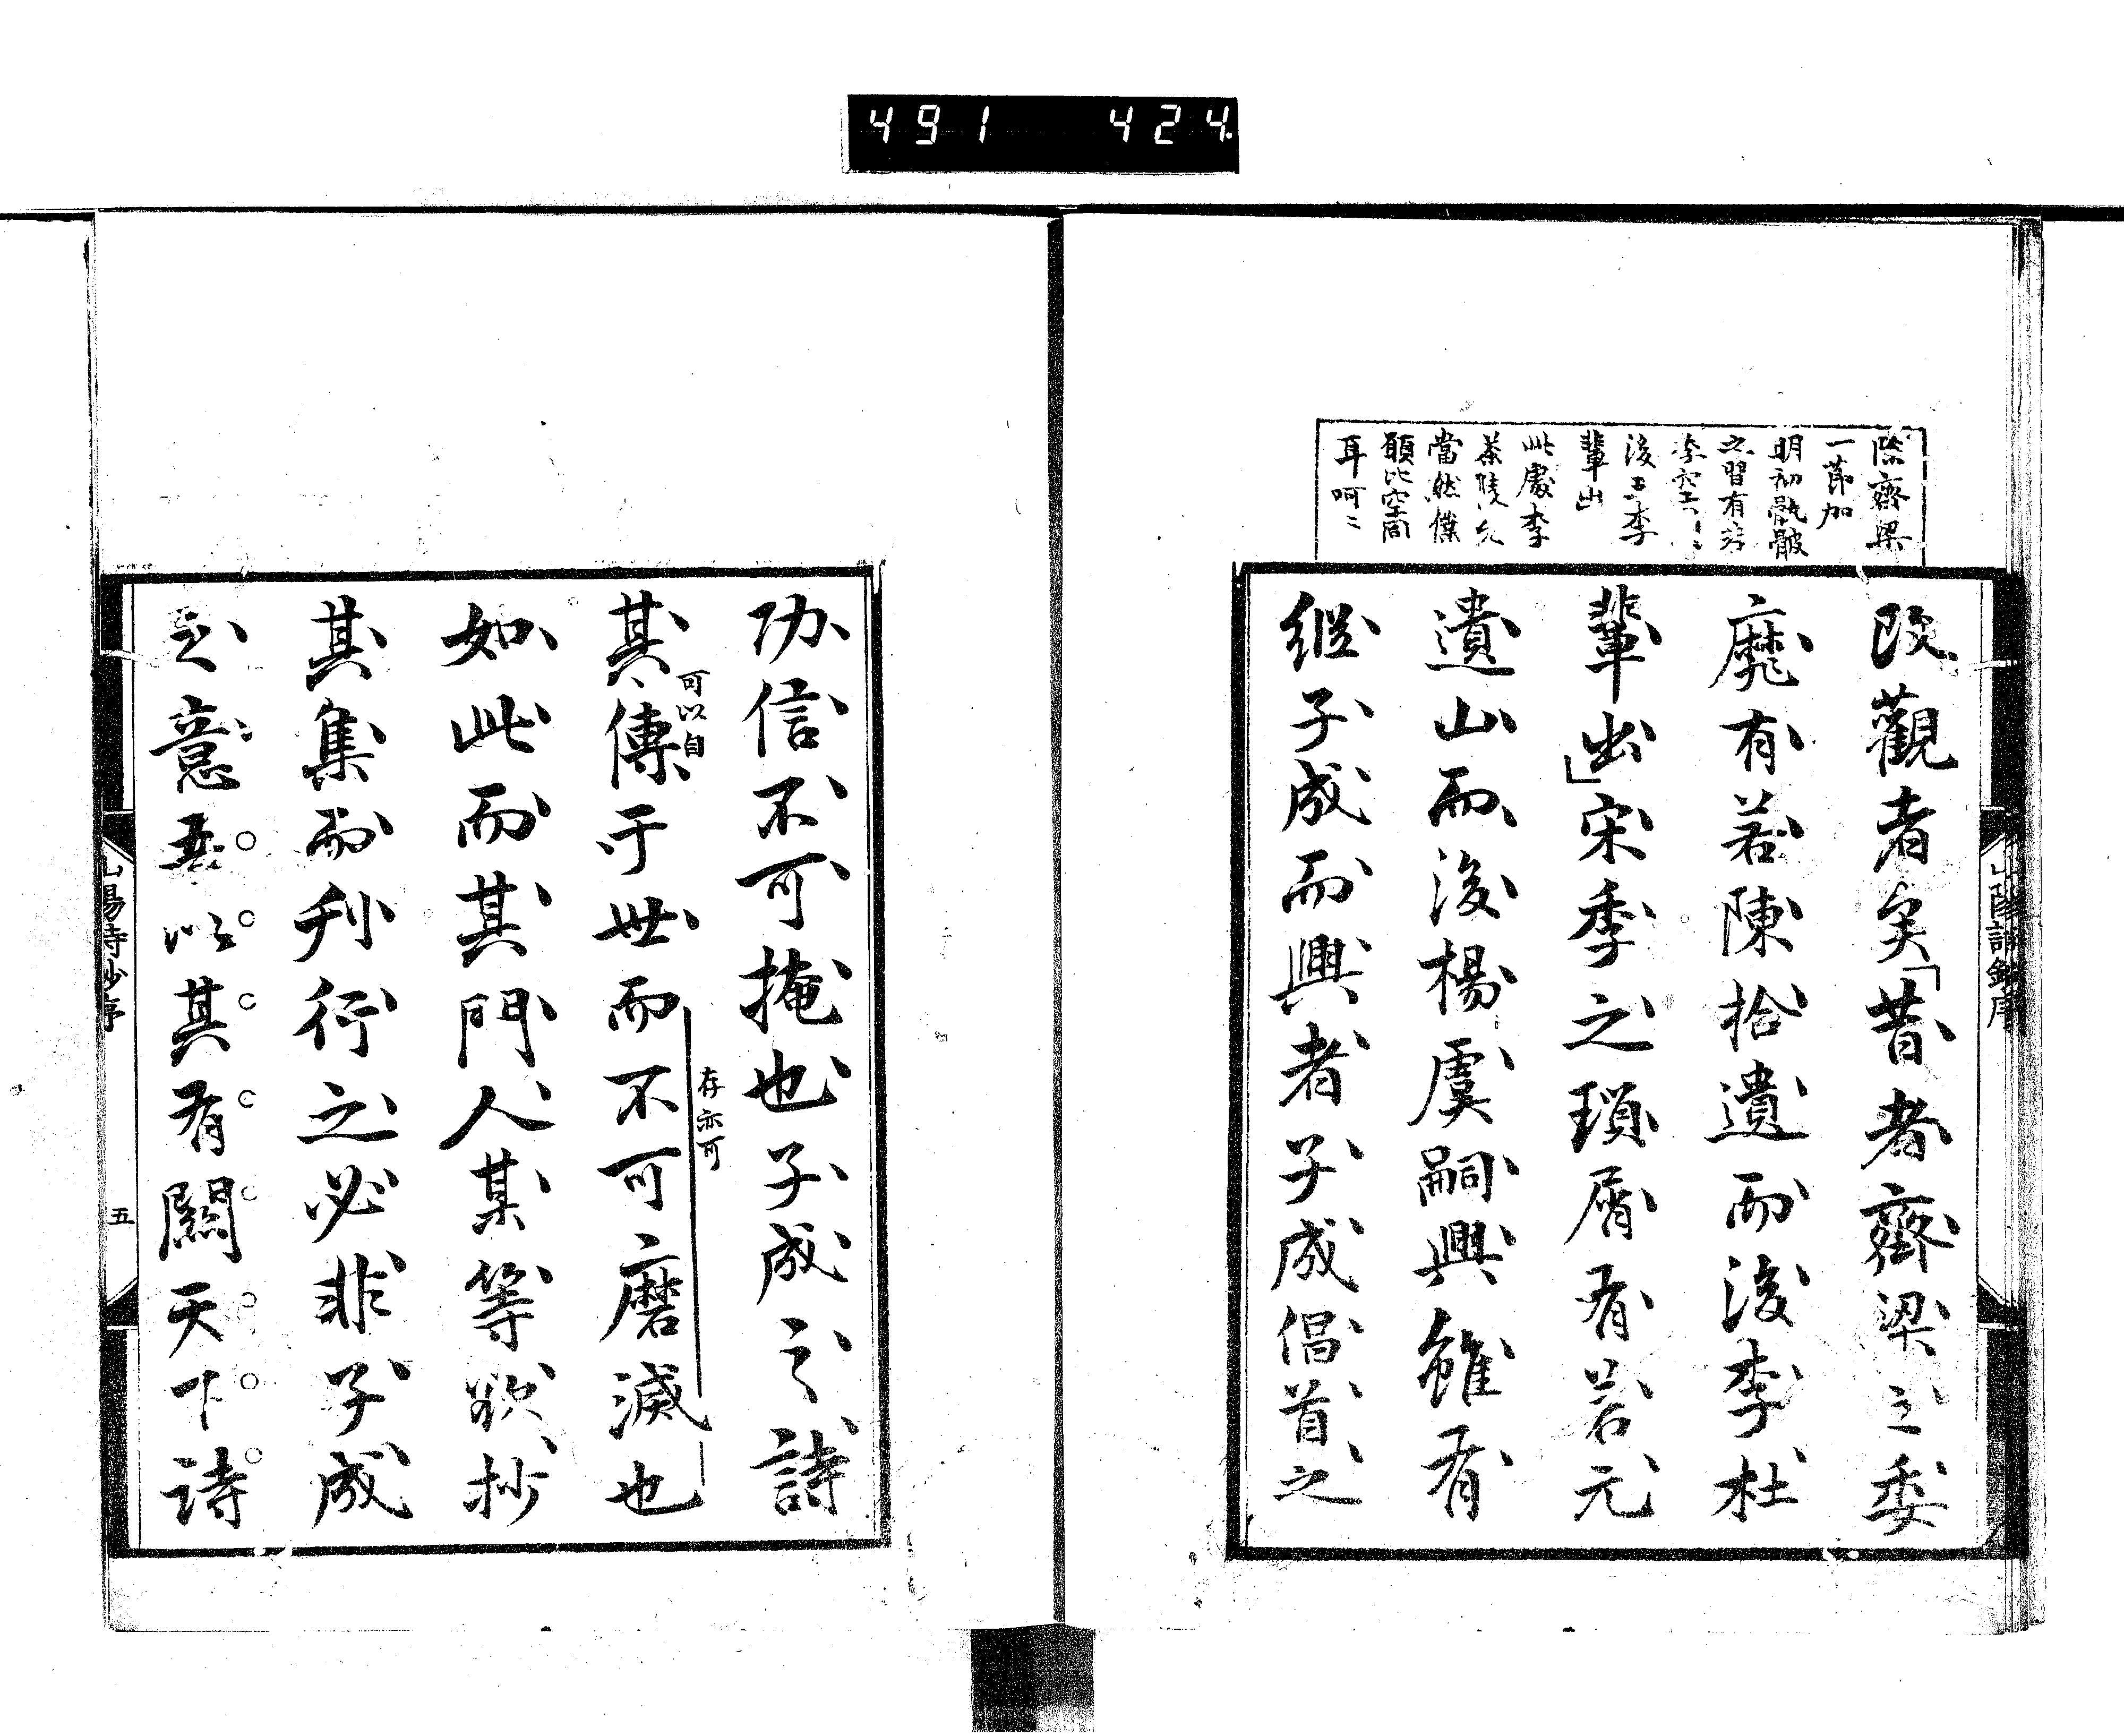 491 424
除齊梁
一節加
明初骫骳
之習有若
李空
後王李
輩出
此處李
茶陵允
當然僕
願比空同
耳呵〻
改觀者矣「昔者齊梁之委
靡有若陳拾遺而後李杜
輩出」宋季之瑣屑有若元
遺山而後楊虞嗣興雖有
繼子成而興者子成倡首之
山陽詩鈔序
功信不可掩也子成之詩
可以自
其傳于世而不可磨滅也
存亦可
如此而其門人某等欲抄
其集而刋行之必非子成
之意吾以其有關天下詩
山陽詩鈔序
五